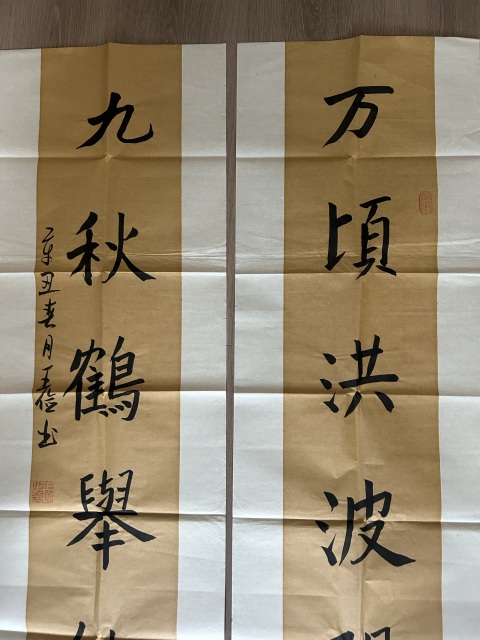 万頃洪波
九秋鶴舉
辛丑春月
书